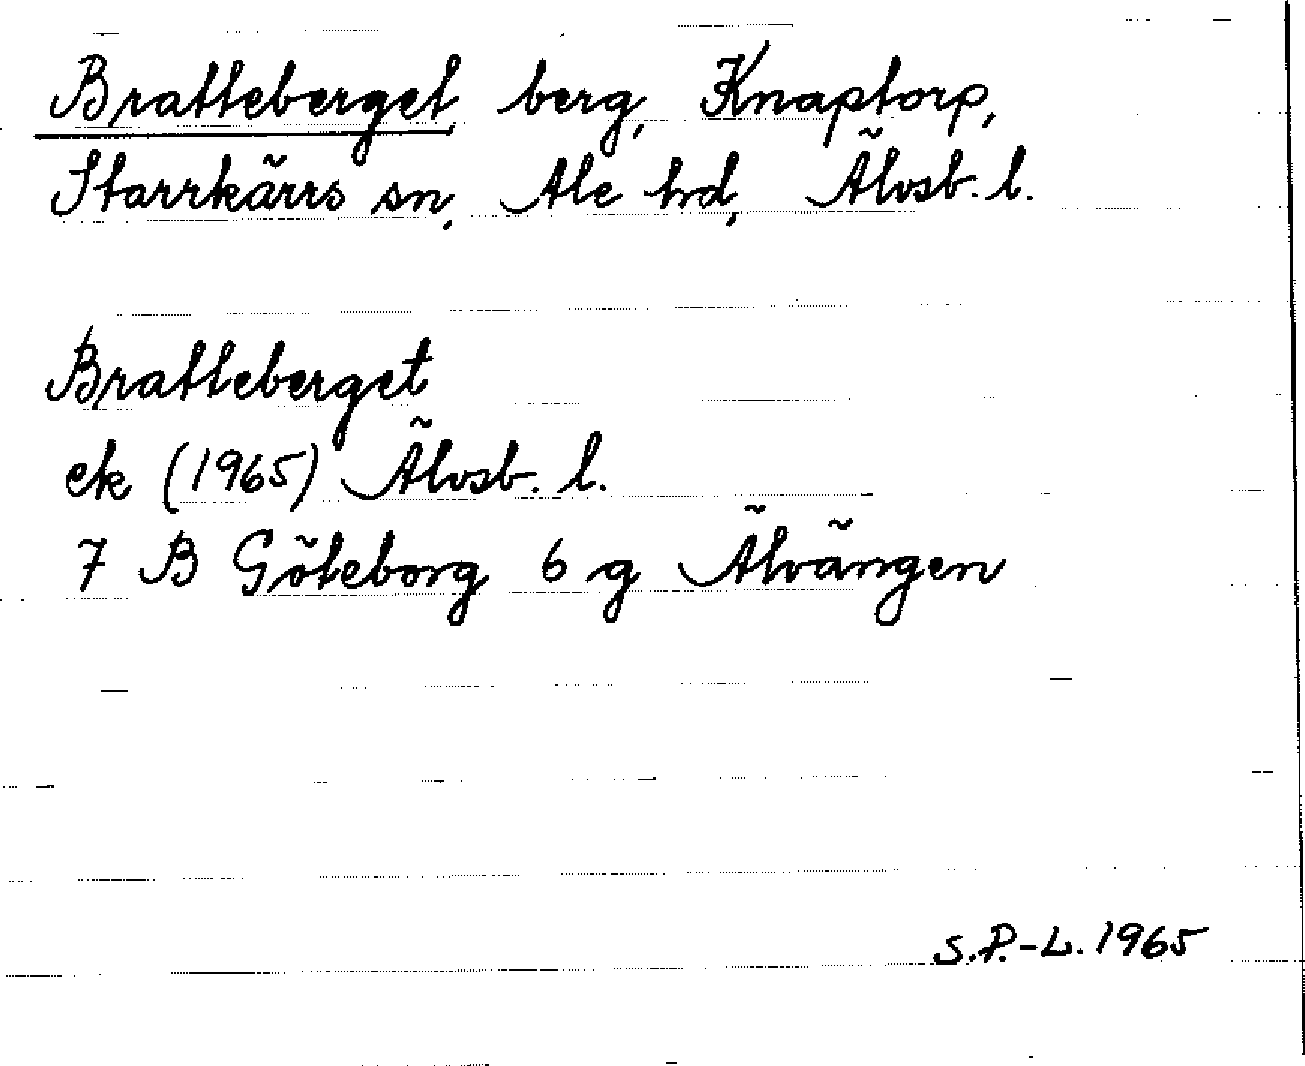 Bratteberget, berg, Knaptorp,
Starrkärrs sn, Ale hd, Älvsb. l.
Bratteberget
ek (1965) Älvsb. l.
7 B Göteborg 6 g Älvängen
S.P.-L. 1965